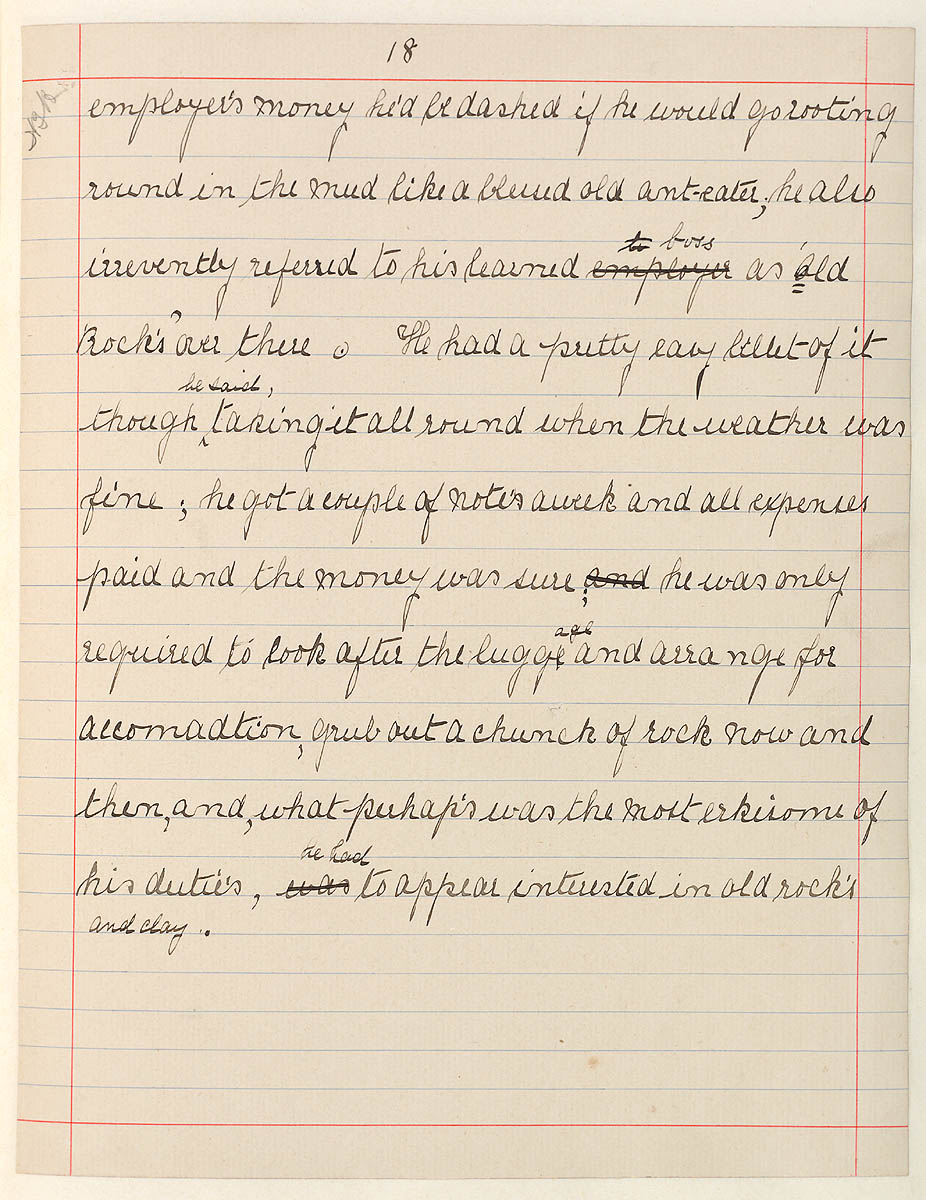 18
employer's money he'd be dashed if he would go rooting
round in the mud like a blessed old ant-eater; he also
to boss
irrevently referred to his learned employer as 'old
Rock's' over there . He had a pretty easy billet of it
he said,
though taking it all round when the weather was
fine ; he got a couple of note's a week and all expenses
paid and the money was sure; and he was only
age
required to look after the lugge and arrange for
accomadtion, grub out a chunck of rock now and
then, and, what perhap's was the most erkisome of
he had
his dutie's, was to appear interested in old rock's
and clay .